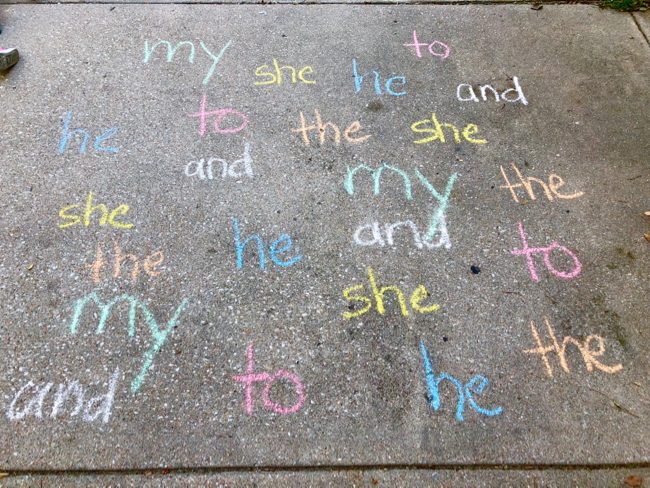 my to
she he and
he to the she
and my the
she he and to
the
my she
the
and to he